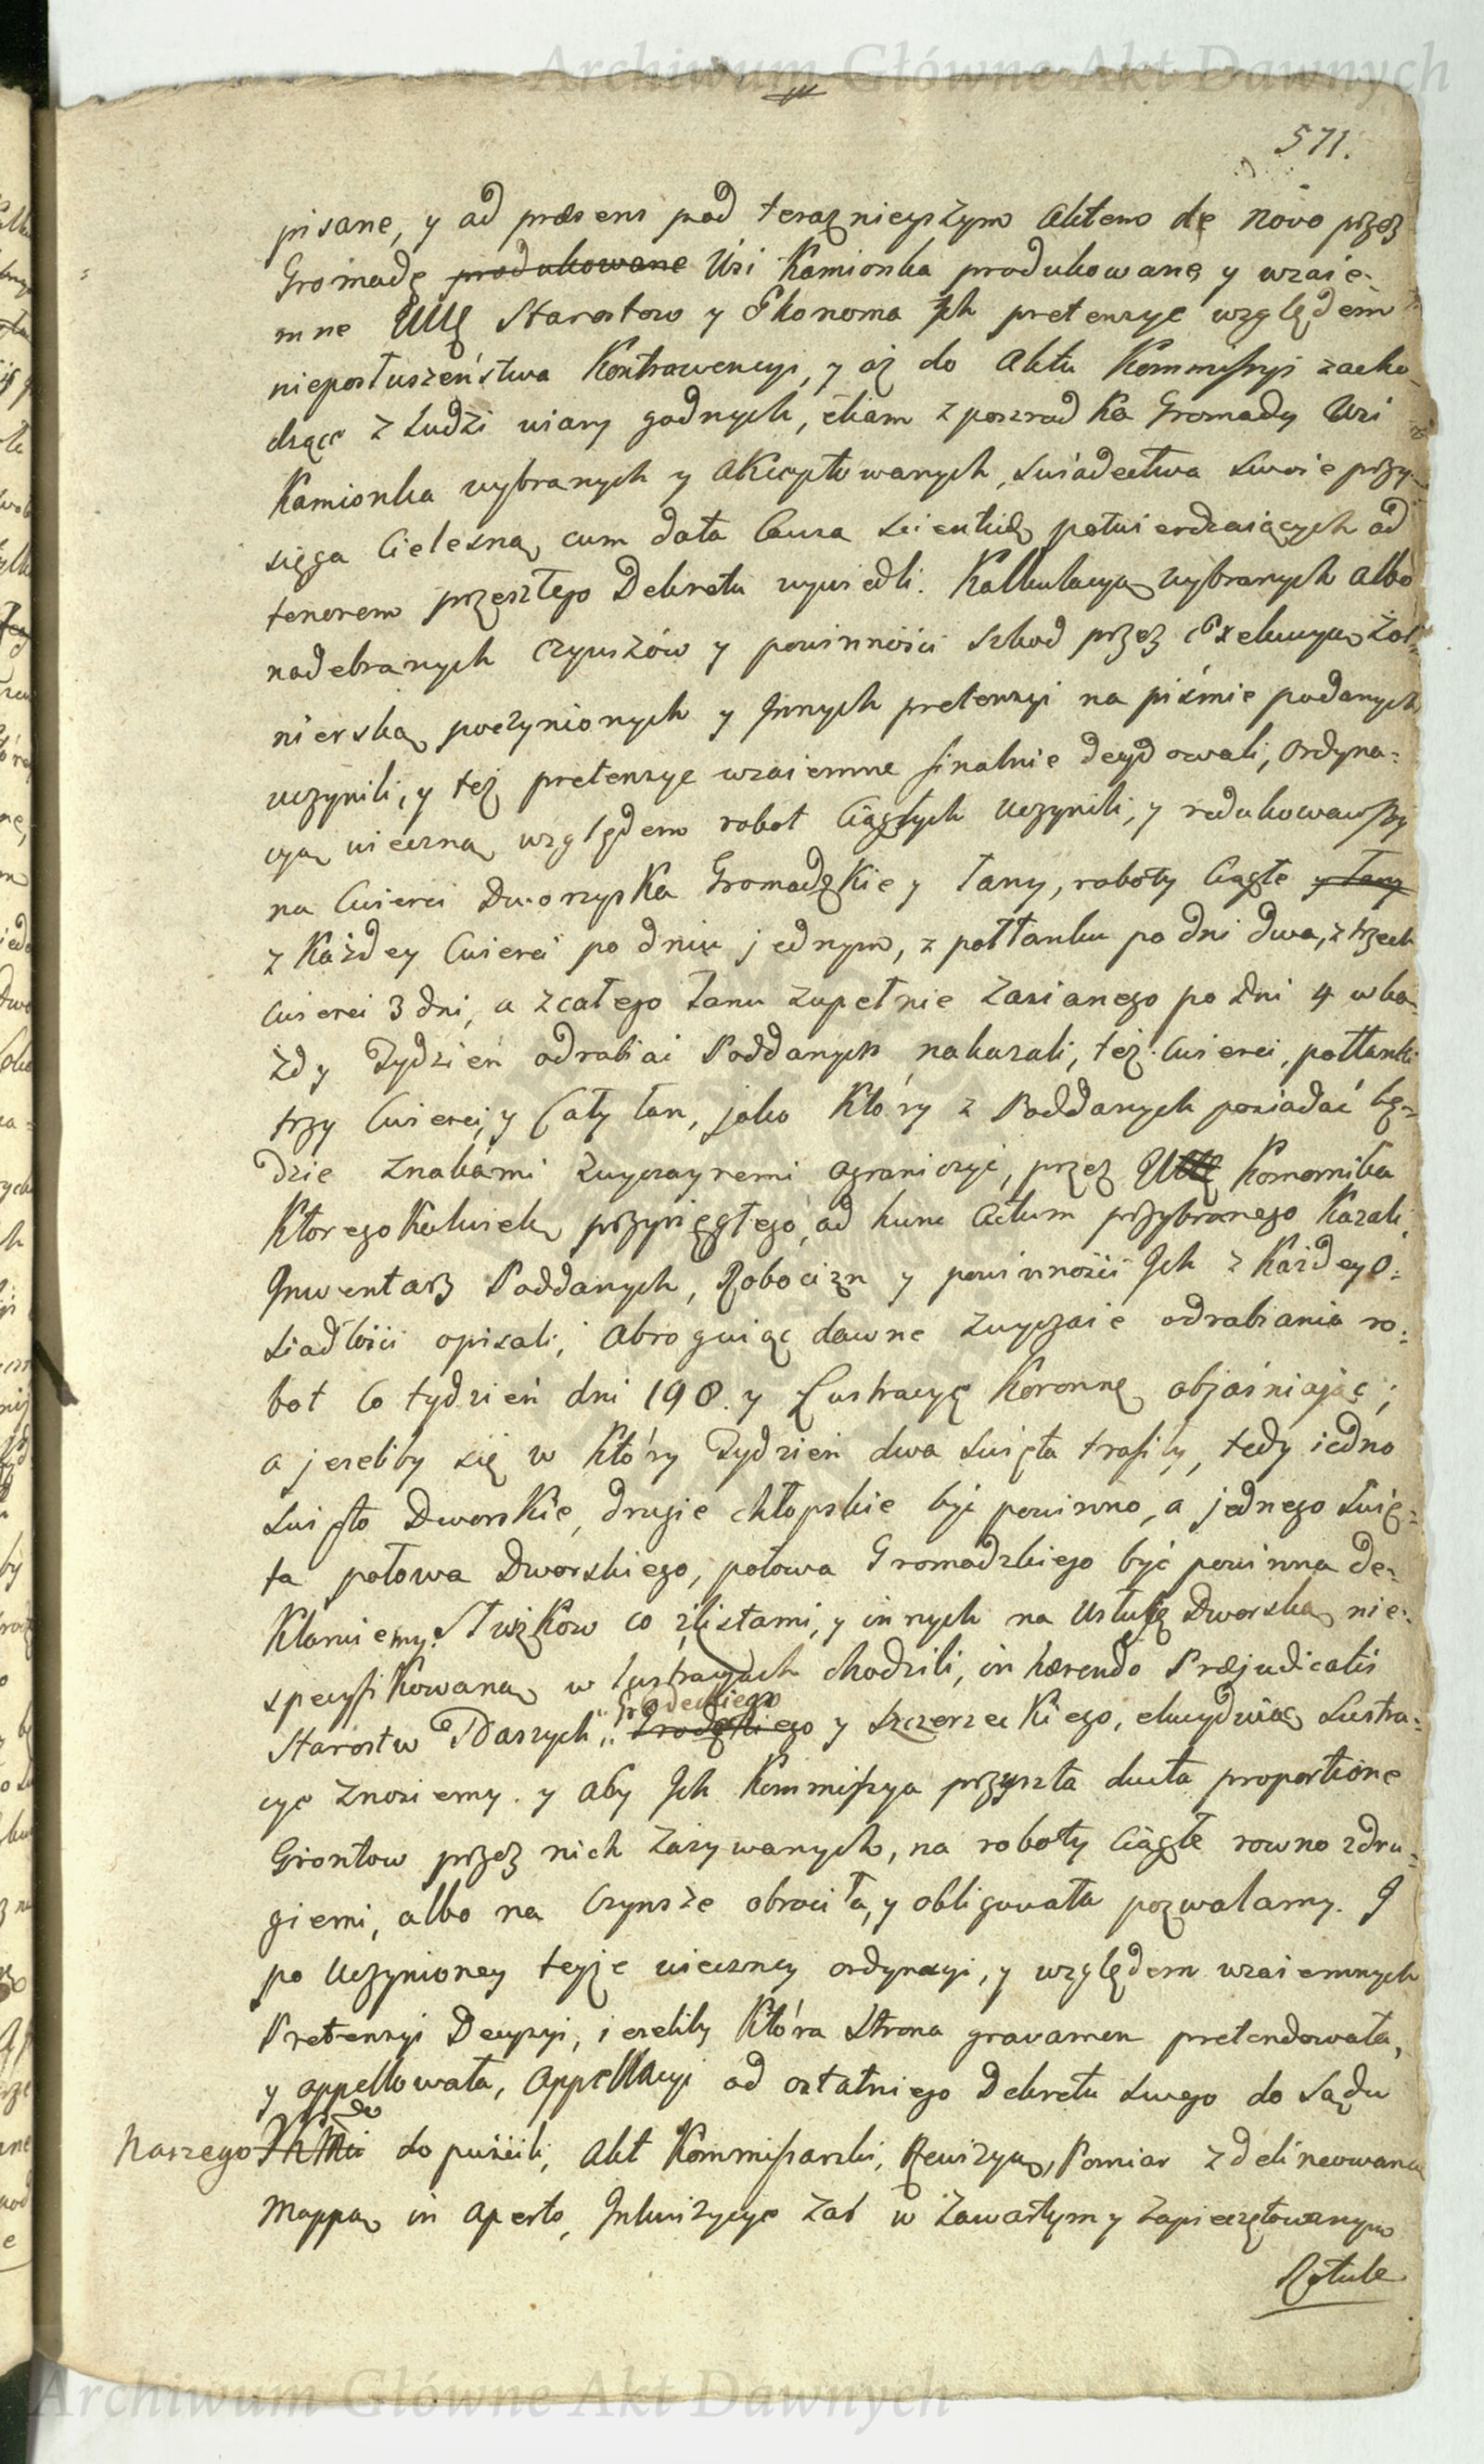 Archiwum Główne Akt Dawnych
571.
pisane, y ad præsens pod teraznieyszym Aktem de novo przez
Gromadę produkowane Wsi Kamionka produkowane y wzaie-
mne Starostow y Ekonoma Ich pretensye względem
nieposłuszeństwa Kontrawencyi, y aż do Aktu Kommissyi zacho-
dzące z Ludzi wiary godnych, etiam z poszrodka Gromady Wsi
Kamionka wybranych y akceptowanych, swiadectwa swoie przy-
sięgą Cielesną cum data Causa scientiæ potwierdzaiących ad
tenorem przeszłego Dekretu wywiedli. Kalkulacyą wybranych albo
nadebranych czynszów y powinności szkod przez Exekucyą Żoł-
nierską poczynionych y Innych pretensyi na piśmie podanych
uczynili, y też pretensye wzaiemne finalnie decydowali, Ordyna-
cyą wieczną względem robot Ciągłych uczynili, y redukowawszy
na Cwierci Dworzyska Gromadzkie y Łany, roboty Ciągłe y Łany
z Każdey Cwierci po dniu jednym, z połłanku po dni dwa, z trzech
Cwierci 3 dni, a z całego Łanu zupełnie zasianego po dni 4 w ka-
żdy Tydzień odrabiać Poddanych nakazali, też Cwierci, połłanki
trzy Cwierci, y Cały łan, jako Który z Poddanych posiadać bę-
dzie znakami zwyczaynemi ograniczyć, przez Komornika
Ktoregokolwiek przysięgłego, ad hunc Actum przybranego Kazali,
Inwentarz Poddanych, Robocizn y powinności Ich z Każdey O-
siadłości opisali, Abroguiąc dawne zwyczaie odrabiania ro-
bot Co tydzień dni 198. y Lustracyę Koronną objaśniając;
a jeseliby się w Który Tydzień dwa swięta trafiły, tedy iedno
swięto Dworskie, drugie chłopskie być powinno, a jednego swię-
ta połowa Dworskiego, połowa Gromadzkiego być powinna de-
Klaruiemy. Służkow co z listami, y innych na Usługę Dworską nie-
specyfikowaną w lustracyach chodzili, in hærendo Præjudicatis
Starostw Naszych Grodeckiego y Szczerzeckiego, elucyduiąc Lustra-
cye znosiemy. y aby Ich Kommissya przyszła ducta proportione
Grontow przez nich zażywanych, na roboty Ciągłe rowno z dru-
giemi, albo na Czynsze obrociła, y obligowała pozwalamy. I
po Uczynioney teyże wieczney ordynacyi, y względem wzaiemnych
Pretensyi Decyzyi, ieseliby Która Strona gravamen pretendowała,
y appellowała, Appellacyi od ostatniego Dekretu swego do Sądu
Naszego dopuścili, Akt Kommissarski, Rewizyą, Pomiar z delineowaną
Mappą in Aperto, Inkwizycye zaś w zawartym y zapieczętowanym
Rotule
Archiwum Główne Akt Dawnych